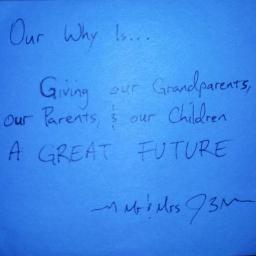 Our Why Is...
Giving our Grandparents,
our Parents, & our Children
A GREAT FUTURE
Mr & Mrs